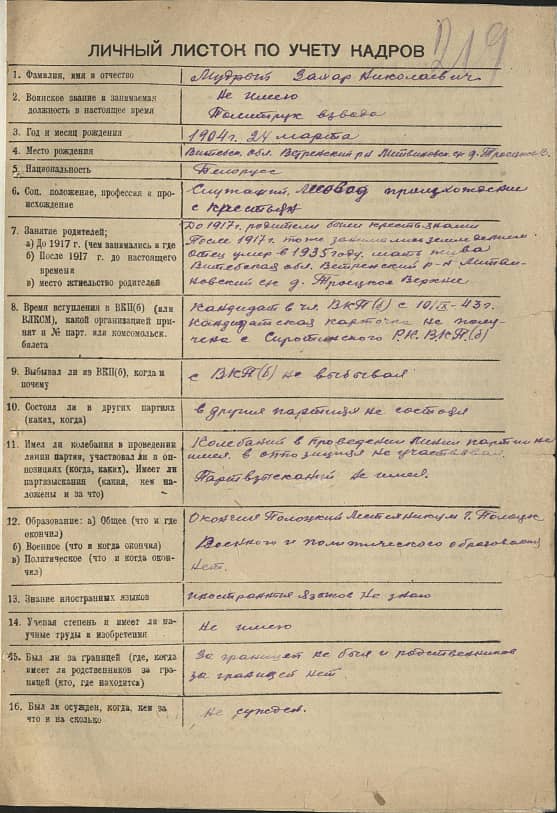 219
ЛИЧНЫЙ ЛИСТОК ПО УЧЕТУ КАДРОВ
1. Фамилия, имя и отчество
Мудрый Захар Николаевич
2. Воинское звание и занимаемая
должность в настоящее время
Не имею
Политрук взвода
3. Год и месяц рождения
1904 г. 24 марта
4. Место рождения
Витебск. обл. Ветренский р-н с/с д. Троецкое
5. Национальность
Белорус
6. Соц. положение, профессия и про-
исхождение
Служащий, лесовод происхождение
с крестьян
7. Занятие родителей;
а) До 1917 г. (чем занимались и где
б) После 1917 г. до настоящего
времени
в) место жительство родителей
До 1917 г. родители были крестьянами
После 1917 г. тоже занимались земледелием
отец умер в 1935 году, мать жива
Витебская обл. Ветренский р-н
с/с д. Троецкое
8. Время вступления в ВКП(б) (или
ВЛКСМ), какой организацией при-
нят и № парт. или комсомольск.
билета
Кандидат в чл. ВКП(б) с 10/IX-43 г.
Кандидатская карточка не полу-
чена с Сиротинского Р.К. ВКП(б)
9. Выбывал ли из ВКП(б), когда и
почему
с ВКП(б) не выбывал
10. Состоял ли в других партиях
(каких, когда)
в других партиях не состоял
11. Имел ли колебания в проведении
линии партии, участвовал ли в оп-
позициях (когда, каких). Имеет ли
партвзыскания (какия, кем на-
ложены и за что)
Колебаний в проведении линии партии не
имел. в оппозициях не участвовал.
Партвзысканий не имел.
12. Образование: а) Общее (что и где
окончил)
б) Военное (что и когда окончил)
в) Политическое (что и когда окон-
чил)
Окончил Полоцкий Лестехникум г. Полоцк
Военного и политического образования
нет.
13. Знание иностранных языков
иностранных языков не знаю
14. Ученая степень и имеет ли на-
учные труды и изобретения
Не имею
15. Был ли за границей (где, когда
имеет ли родственников за гра-
ницей (кто, где находится)
За границей не был и родственников
за границей нет.
16. Был ли осужден, когда, кем за
что и на сколько
не сужден.